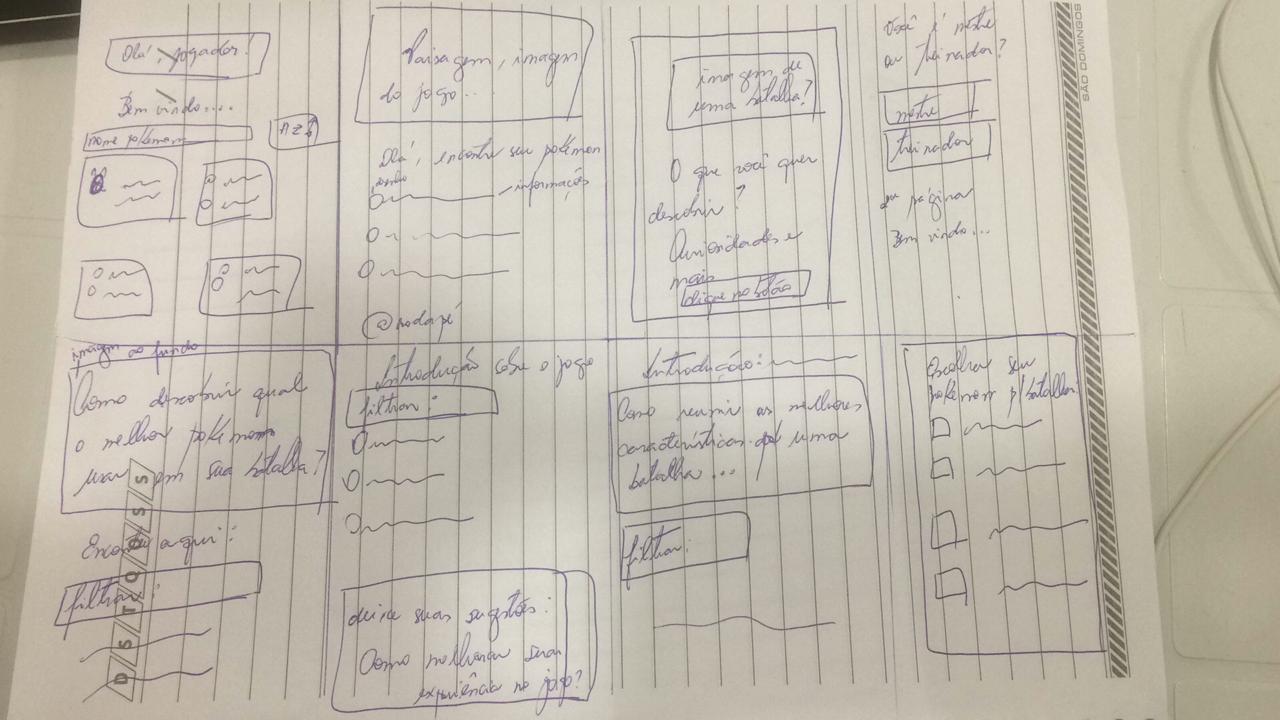 Olá, jogador!
Bem vindo....
nome pokémon
AZ
Paisagem, imagem
do jogo...
Olá, encontre seu pokémon
informações
@rodapé
imagem de
uma batalha?
O que você quer
descobrir?
Curiosidades e
mais
clique no botão
Você é mestre
ou treinador?
mestre
treinador
2ª página
Bem vindo...
imagem ao fundo
Como descobrir qual
o melhor pokémon
usar em sua batalha?
Encontre aqui:
filtrar:
Introdução sobre o jogo
filtrar:
deixe suas sugestões:
Como melhorar sua
experiência no jogo?
Introdução:
Como reunir as melhores
características de uma
batalha...
filtrar:
Escolha seu
pokémon p/ batalhar
SÃO DOMINGOS
D S T Q Q S S